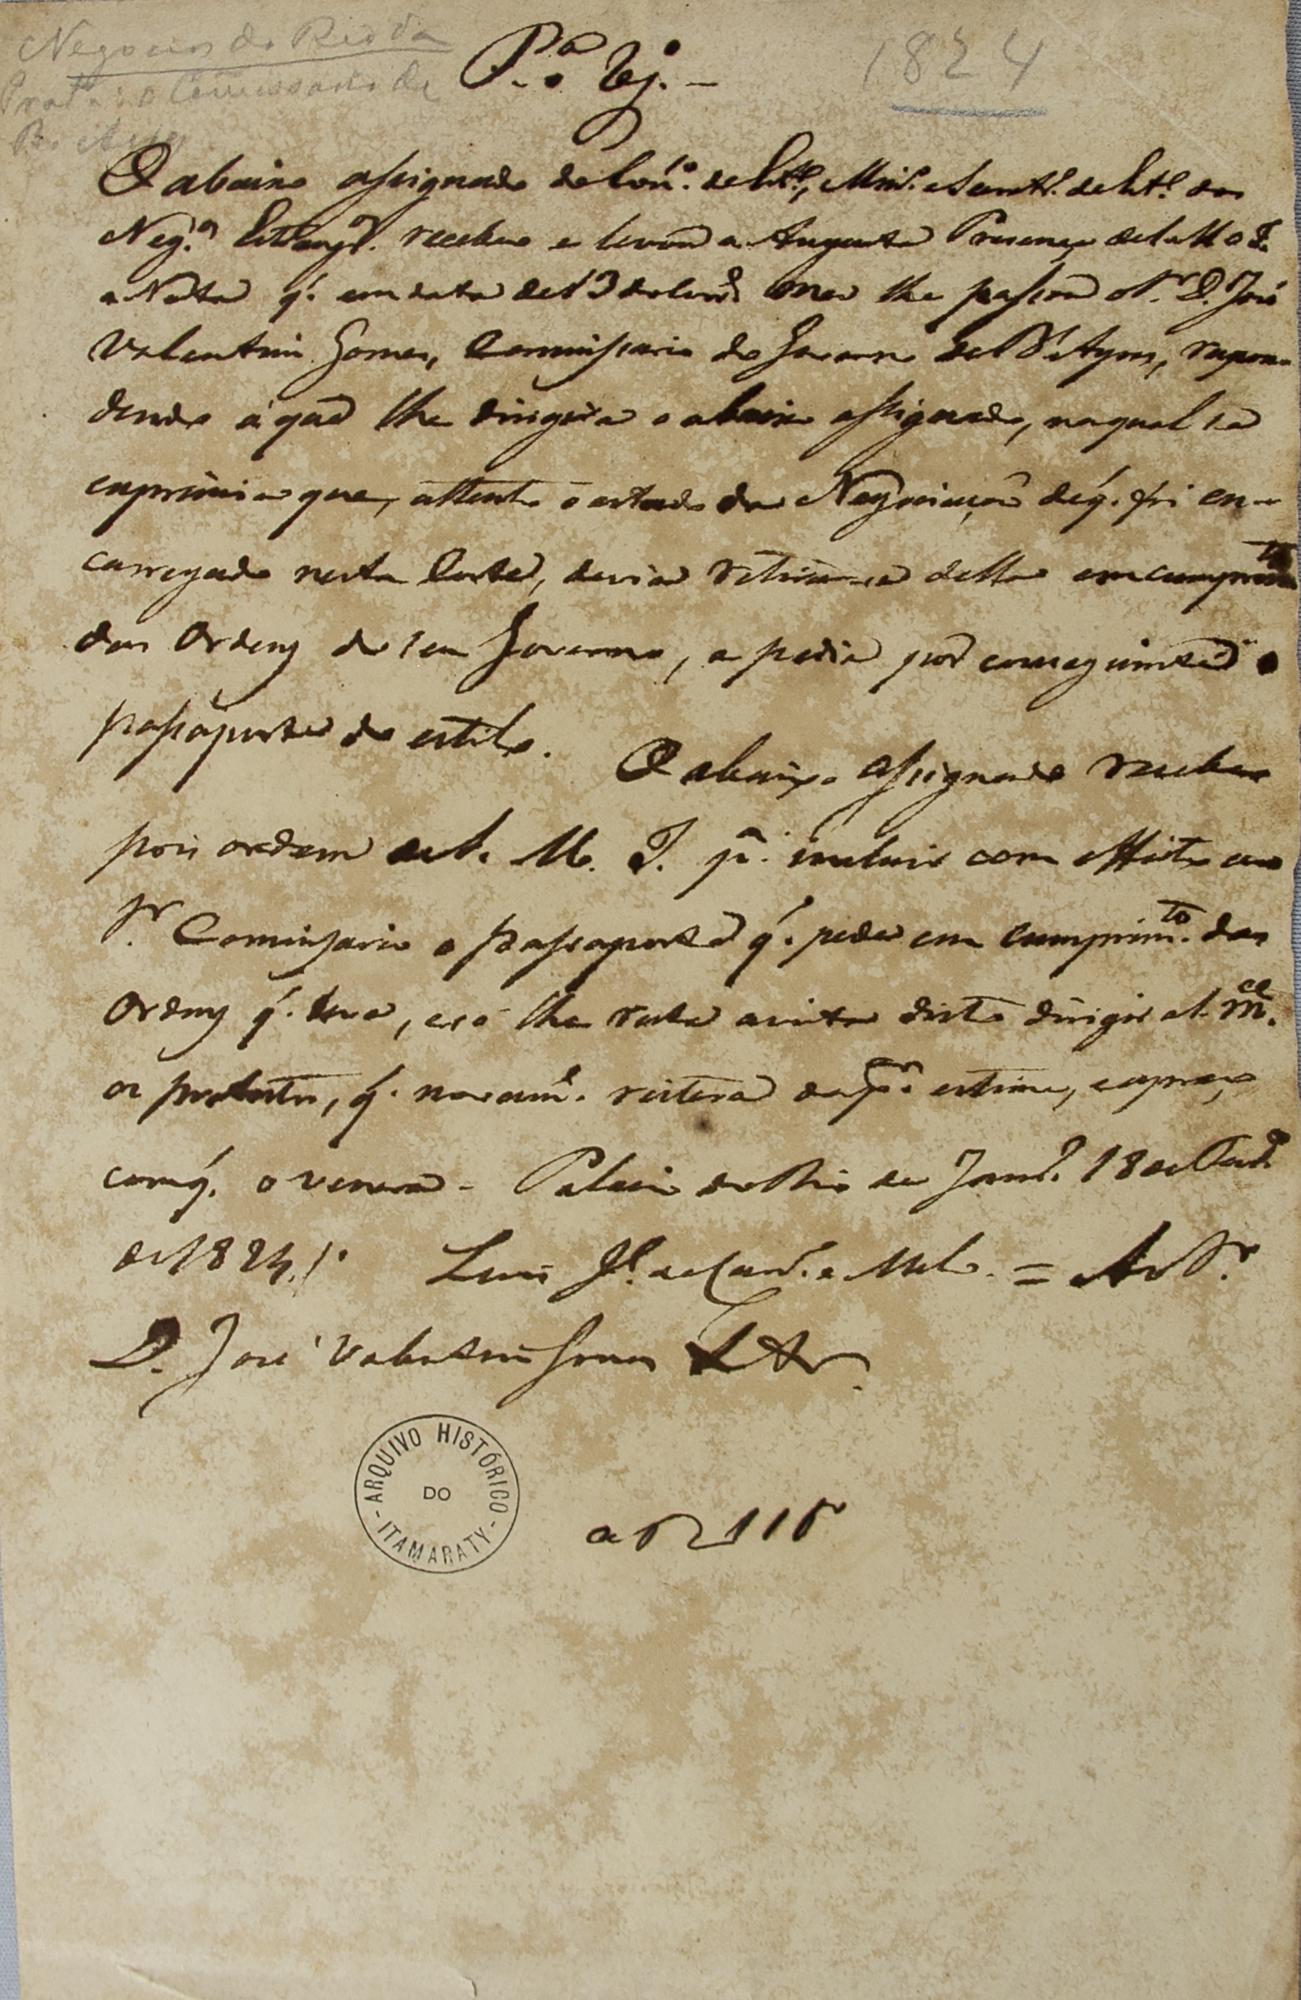 Negocios do Rio da
Prata: o Comissario de
B. Ayres
1824
P.ª
O abaixo assignado do Con.º de Est.º, Min.º e Secret.º de Est.º dos
Neg.ºs Estrang.ºs recebeo e levou a Augusta Presença de S. M. o I.
a Nota q.' em data de 13 do corr.e mez lhe passou o S.r D. José
Valentim Gomes, Commissario do Governo de B.s Ayres, respon-
dendo á que lhe dirigira o abaixo assignado, na qual se
exprimia que, attento o estado da Negociação de q.' foi en-
carregado nesta Corte, devia retirar-se della em cumprim.to
das Ordens do seu Governo, e pedia por conseguinte o
passaporte do estilo.
O abaixo assignado recebeo
pois ordem de S. M. I. p.ª incluir com effeito ao
S.r Comissario o passaporte q.' pede em cumprim.to das
Ordens q.' teve, e só lhe resta á vista disto dirigir a S. M.ce
os protestos, q.' novam.e reitera da p.ar estima, e apreço
com q.' o venera - Palacio do Rio de Janr.º 18 de Fevr.º
de 1824. Luis J.e de Carv.º e Mello. = Ao S.r
D. José Valentim Gomes
ARQUIVO HISTÓRICO
DO
ITAMARATY